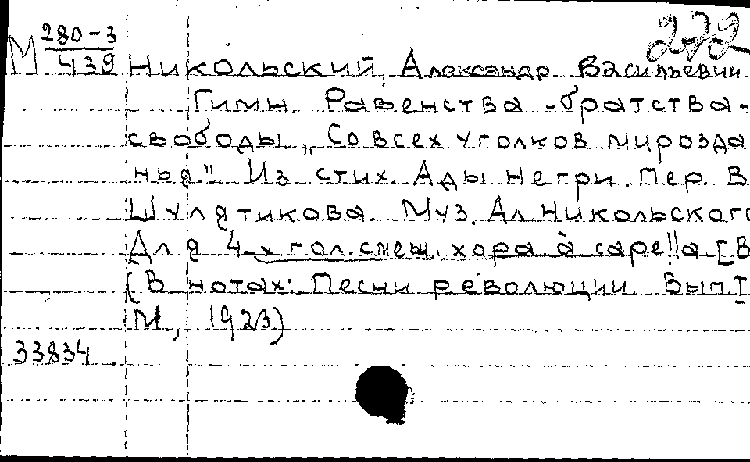 272
М 280-3
439 Никольский, Александр Васильевич
Гимн Равенства-братства-
свободы „Со всех уголков мирозда
нья" Из стих. Ады Негри. Пер. В
Шулятикова. Муз. Ал. Никольского
Для 4-х гол. смеш. хора à capella [В
(В нотах: Песни революции Вып I
М, 1923)
33834